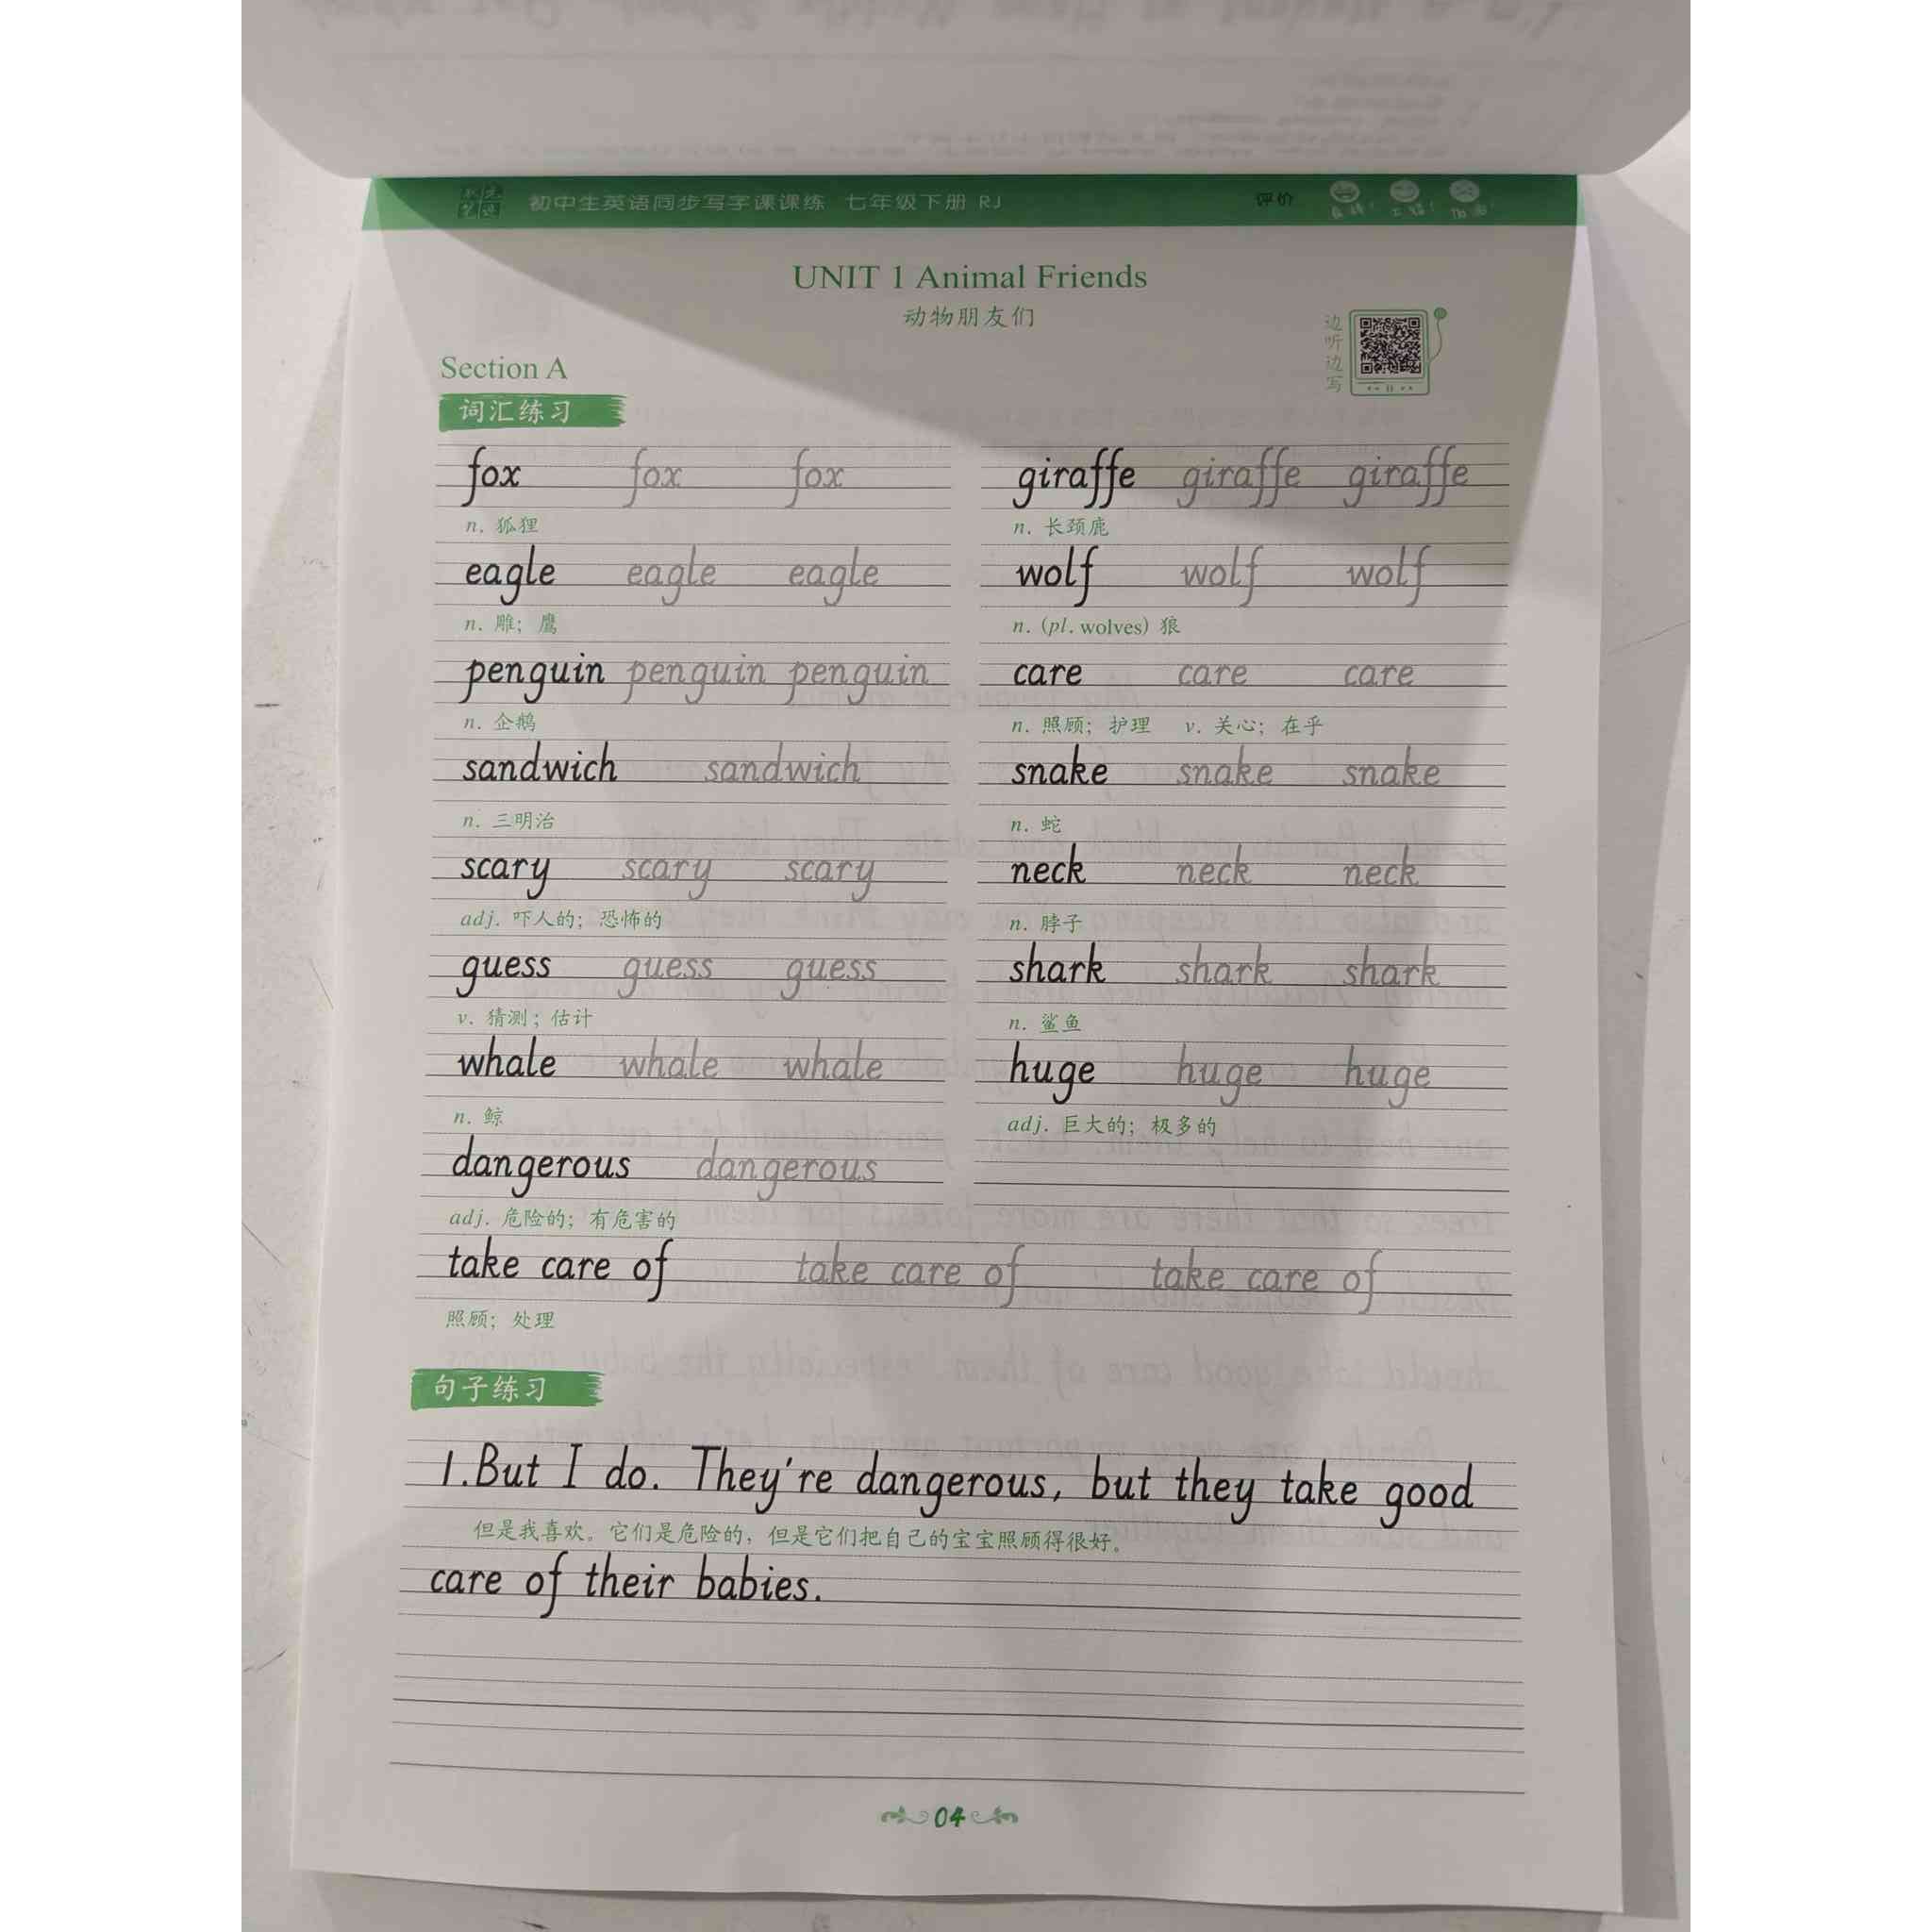 初中生英语同步写字课课练 七年级下册 RJ 评价
UNIT 1 Animal Friends
动物朋友们
边听边写
Section A
词汇练习
fox fox fox
n. 狐狸
eagle eagle eagle
n. 雕；鹰
penguin penguin penguin
n. 企鹅
sandwich sandwich
n. 三明治
scary scary scary
adj. 吓人的；恐怖的
guess guess guess
v. 猜测；估计
whale whale whale
n. 鲸
dangerous dangerous
adj. 危险的；有危害的
giraffe giraffe giraffe
n. 长颈鹿
wolf wolf wolf
n. (pl. wolves) 狼
care care care
n. 照顾；护理 v. 关心；在乎
snake snake snake
n. 蛇
neck neck neck
n. 脖子
shark shark shark
n. 鲨鱼
huge huge huge
adj. 巨大的；极多的
take care of take care of take care of
照顾；处理
句子练习
1.But I do. They're dangerous, but they take good
但是我喜欢。它们是危险的，但是它们把自己的宝宝照顾得很好。
care of their babies.
04